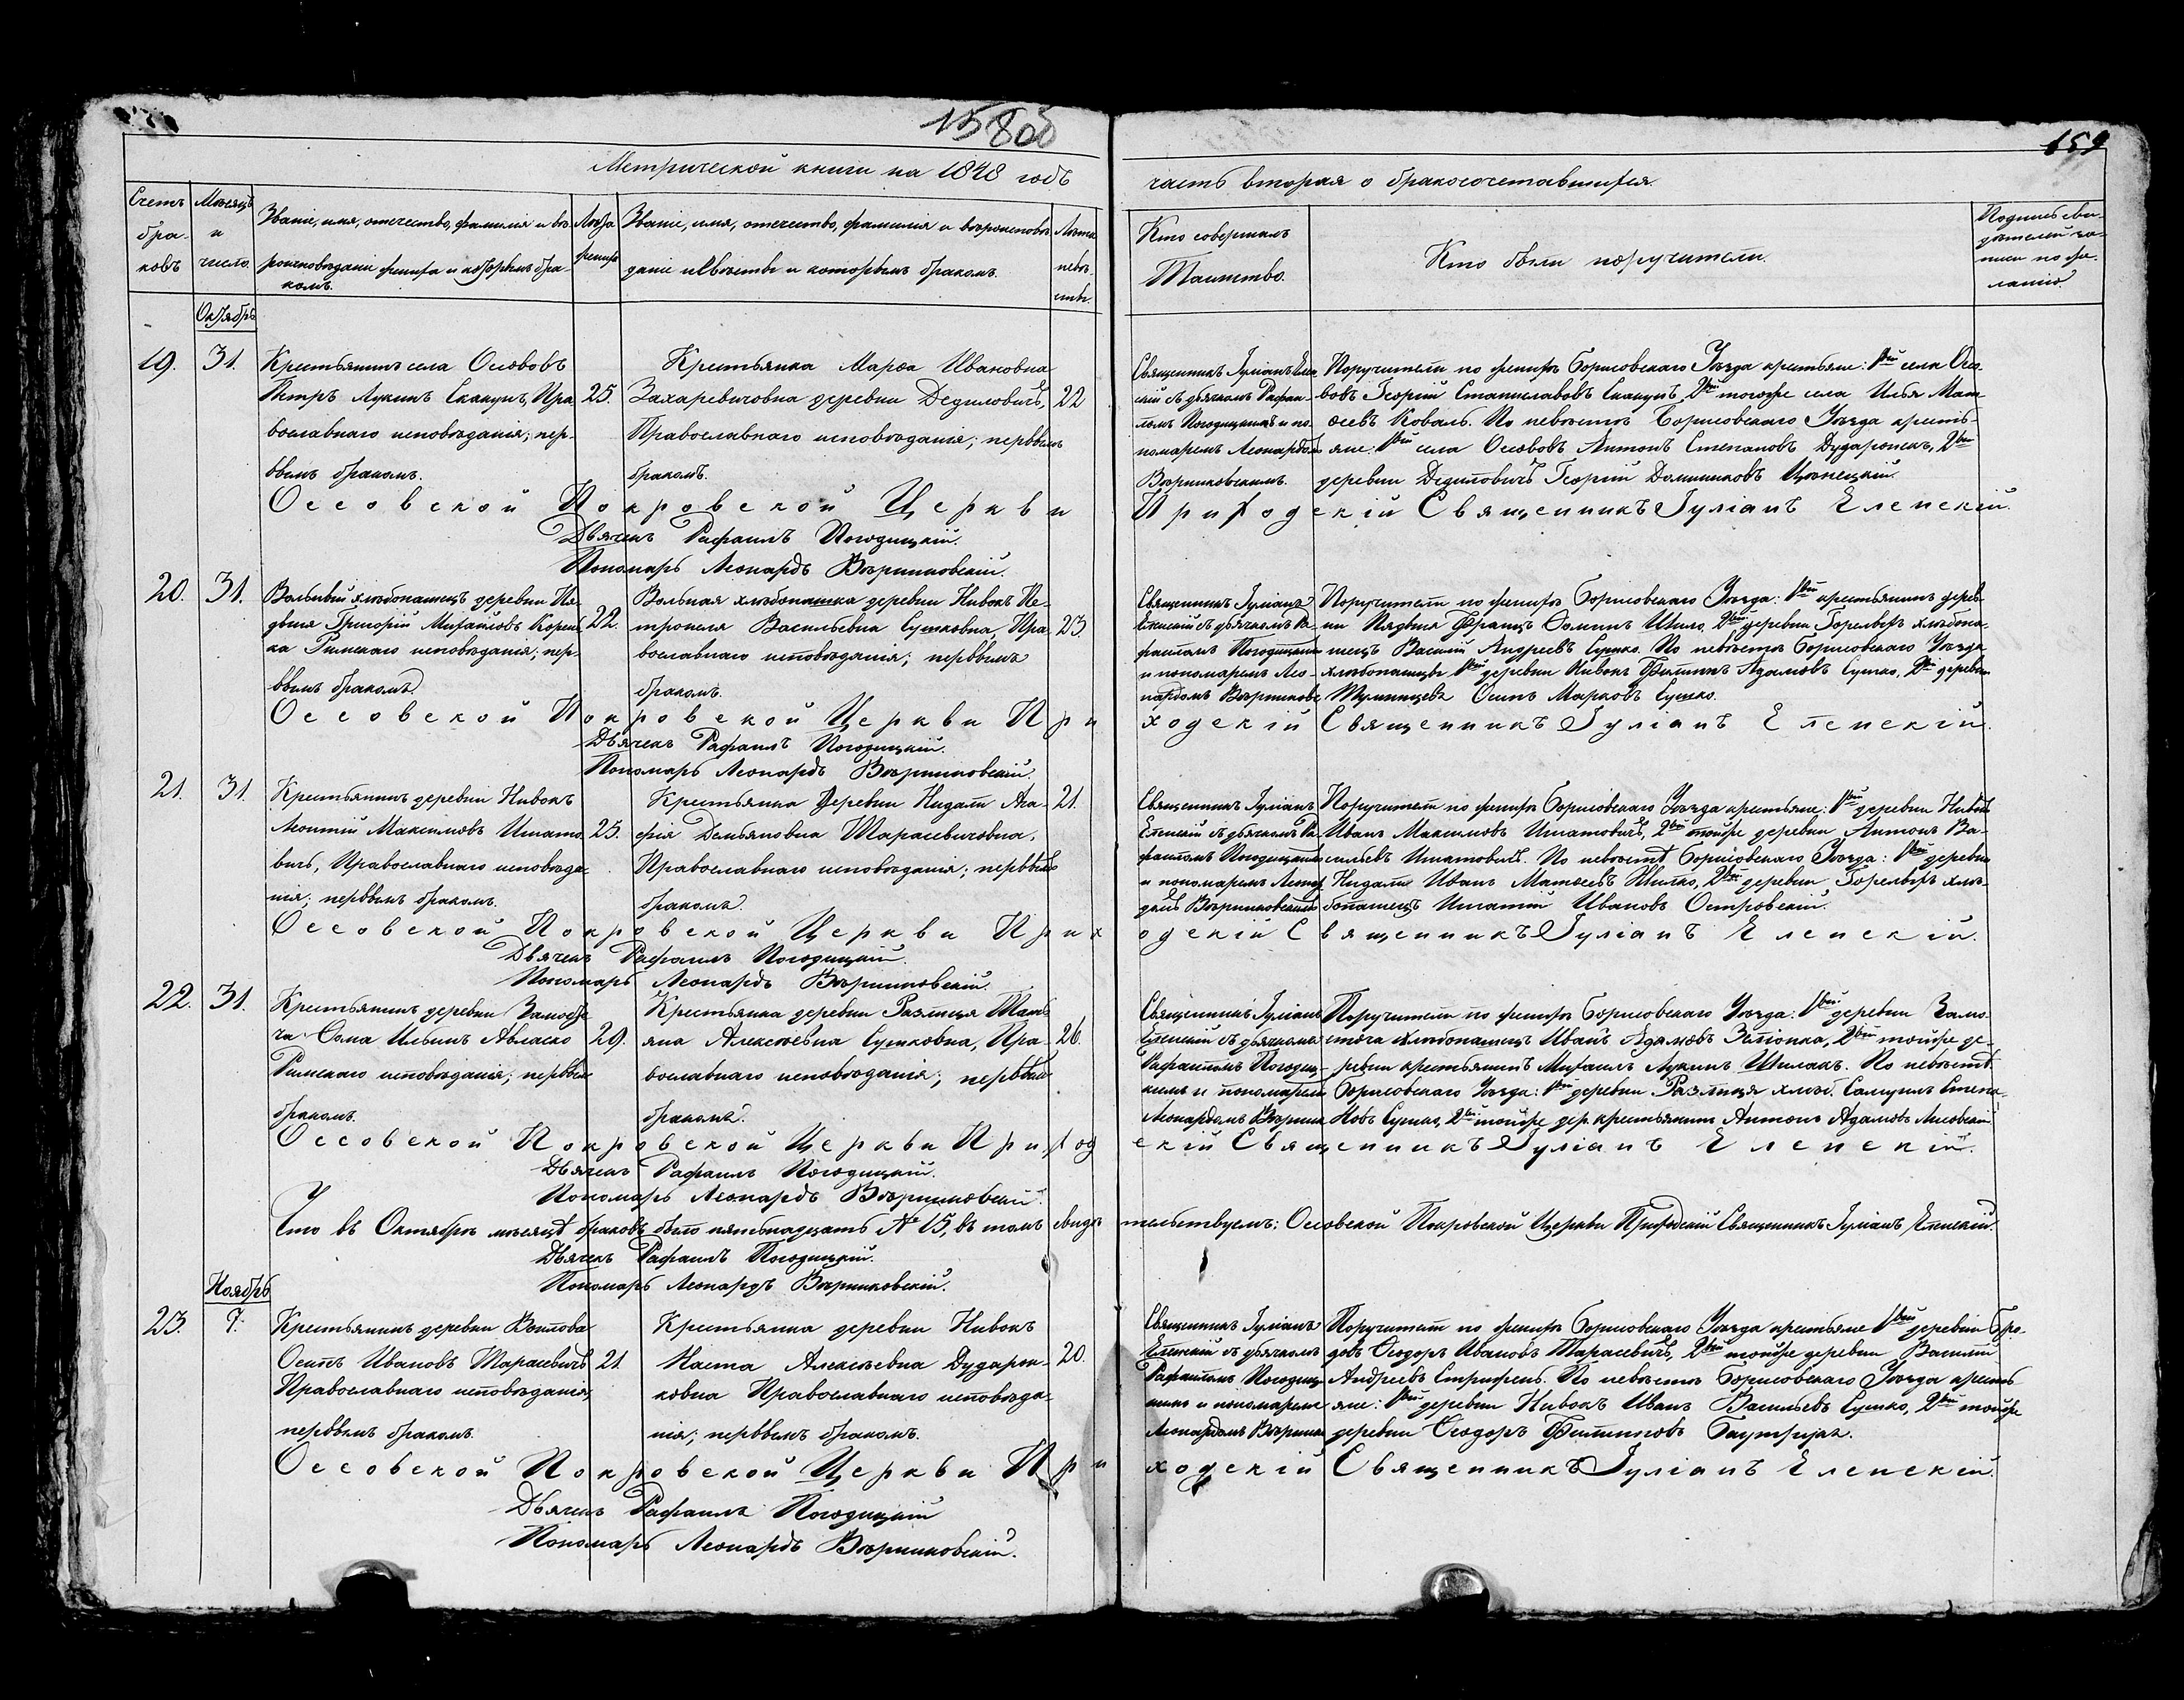 158об
159
Метрической книги на 1848 годъ
часть вторая о бракосочетавшихся.
Счетъ браковъ
Мѣсяцъ и число.
Званіе, имя, отечество, фамилія и вѣроисповѣданіе жениха и которымъ бракомъ.
Лѣта жениха
Званіе, имя, отечество, фамилія и вѣроисповѣданіе невѣсты и которымъ бракомъ.
Лѣта невѣсты.
Кто совершалъ Таинство.
Кто были поручители.
Подпись свидѣтелей записи по желанію.
Октябрь
19. 31.
Крестьянинъ села Осововъ
Петръ Лукинъ Скакунъ, Пра- 25.
вославнаго исповѣданія; пер-
ввымъ бракомъ.
Крестьянка Марѳа Ивановна
Захаревичовна деревни Дедиловичъ, 22
Православнаго исповѣданія; перввымъ
бракомъ.
Священникъ Іуліанъ Елен-
скій съ дьячкомъ Рафаи-
ломъ Погодицкимъ и по-
номаремъ Леонардомъ
Вѣриковскимъ.
Поручители по женихѣ Борисовскаго Уѣзда крестьяне: 1вый села Осо-
вовъ Георгій Станиславовъ Скакунъ, 2вый тогоже села Илья Мат-
ѳеевъ Коваль. По невѣстѣ Борисовскаго Уѣзда кресть-
яне: 1вый села Осововъ Антонъ Степановъ Дударонекъ, 2вый
деревни Дедиловичъ Георгій Доминиковъ
Оссовской Покровской Церкви Приходскій Священникъ Іуліанъ Еленскій.
Дьячекъ Рафаилъ Погодицкій.
Пономарь Леонардъ Вѣриковскій.
20. 31.
Вольный хлѣбопашецъ деревни Ня-
двия Григорій Михайловъ Корень- 22.
ка Римскаго исповѣданія; пер-
ввымъ бракомъ.
Вольная хлѣбопашка деревни Нивокъ Пе-
тронеля Васильевна Сушковна, Пра- 23.
вославнаго исповѣданія; перввымъ
бракомъ.
Священникъ Іуліанъ
Еленскій съ дьячкомъ Ра-
фаиломъ Погодицкимъ
и пономаремъ Лео-
нардомъ Вѣриковс
Поручители по женихѣ Борисовскаго Уѣзда: 1вый крестьянинъ дерев-
ни Нядвия Францъ Ѳоминъ Шило, 2вый деревни Горелыхъ хлѣбопа-
шецъ Василій Андреевъ Сушко. По невѣстѣ Борисовскаго Уѣзда
хлѣбопашцы 1вый деревни Нивокъ Филипъ Адамовъ Сушко, 2вый деревни
Осипъ Марковъ Сушко.
Оссовской Покровской Церкви Приходскій Священникъ Іуліанъ Еленскій.
Дьячекъ Рафаилъ Погодицкій.
Пономарь Леонардъ Вѣриковскій.
21. 31.
Крестьянинъ деревни Нивокъ
Леонтій Максимовъ Игнато- 25.
вичъ, Православнаго исповѣда-
нія; перввымъ бракомъ.
Крестьянка Деревни Нидали Ага- 21.
фія Демьяновна Тарасевичовна,
Православнаго исповѣданія; перввымъ
бракомъ.
Священникъ Іуліанъ
Еленскій съ дьячкомъ Ра-
фаиломъ Погодицкимъ
и пономаремъ Леонар-
домъ Вѣриковскимъ
Поручители по женихѣ Борисовскаго Уѣзда крестьяне: 1вый деревни Нивокъ
Иванъ Максимовъ Игнатовичъ, 2вый тойже деревни Антонъ Ва-
сильевъ Игнатовичъ. По невѣстѣ Борисовскаго Уѣзда: 1вый деревни
Нидали Иванъ Матѳеевъ Шилко, 2вый деревни Горелыхъ хлѣ-
бопашецъ Игнатій Ивановъ Островскій.
Оссовской Покровской Церкви Приходскій Священникъ Іуліанъ Еленскій.
Дьячекъ Рафаилъ Погодицкій.
Пономарь Леонардъ Вѣриковскій.
22. 31.
Крестьянинъ деревни Замостo-
ча Ѳома Ильинъ Авласко 29.
Римскаго исповѣданія; перввымъ
бракомъ.
Крестьянка деревни Разлиця Тать-
яна Алексѣевна Сушковна, Пра- 26.
вославнаго исповѣданія; перввымъ
бракомъ.
Священникъ Іуліанъ
Еленскій съ дьячкомъ
Рафаиломъ Погодиц-
кимъ и пономаремъ
Леонардомъ Вѣрик
Поручители по женихѣ Борисовскаго Уѣзда: 1вый деревни Замо-
сточа хлѣбопашецъ Иванъ Адамовъ Зеліонка, 2вый тойже де-
ревни крестьянинъ Михаилъ Лукинъ Шилакъ. По невѣстѣ
Борисовскаго Уѣзда: 1вый деревни Разлиця хлѣб. Самуилъ Степа-
новъ Сушко, 2вый тойже дер. крестьянинъ Антонъ Адамовъ Лисовскій.
Оссовской Покровской Церкви Приходскій Священникъ Іуліанъ Еленскій.
Дьячекъ Рафаилъ Погодицкій.
Пономарь Леонардъ Вѣриковскій.
Что въ Октябрѣ мѣсяцѣ браковъ было пятьнадцать № 15, въ томъ свидѣтельствуемъ: Осовской Покровской Церкви Приходскій Священникъ Іуліанъ Еленскій.
Дьячекъ Рафаилъ Погодицкій.
Пономарь Леонардъ Вѣриковскій.
Ноябрь
23. 7.
Крестьянинъ деревни
Осипъ Ивановъ Тарасевичъ 21.
Православнаго исповѣданія;
перввымъ бракомъ.
Крестьянка деревни Нивокъ
Наста Алексѣевна Дударон- 20.
ковна Православнаго исповѣда-
нія; перввымъ бракомъ.
Священникъ Іуліанъ
Еленскій съ дьячкомъ
Рафаиломъ Погодиц-
кимъ и пономаремъ
Леонардомъ Вѣрик
Поручители по женихѣ Борисовскаго Уѣзда крестьяне 1вый деревни Бро-
довъ Ѳеодоръ Ивановъ Тарасевичъ, 2вый тойже деревни Василій
Андреевъ Стрижень. По невѣстѣ Борисовскаго Уѣзда кресть-
яне: 1вый деревни Нивокъ Иванъ Васильевъ Сушко, 2вый тойже
деревни Ѳеодоръ Филиповъ
Оссовской Покровской Церкви Приходскій Священникъ Іуліанъ Еленскій.
Дьячекъ Рафаилъ Погодицкій
Пономарь Леонардъ Вѣриковскій.